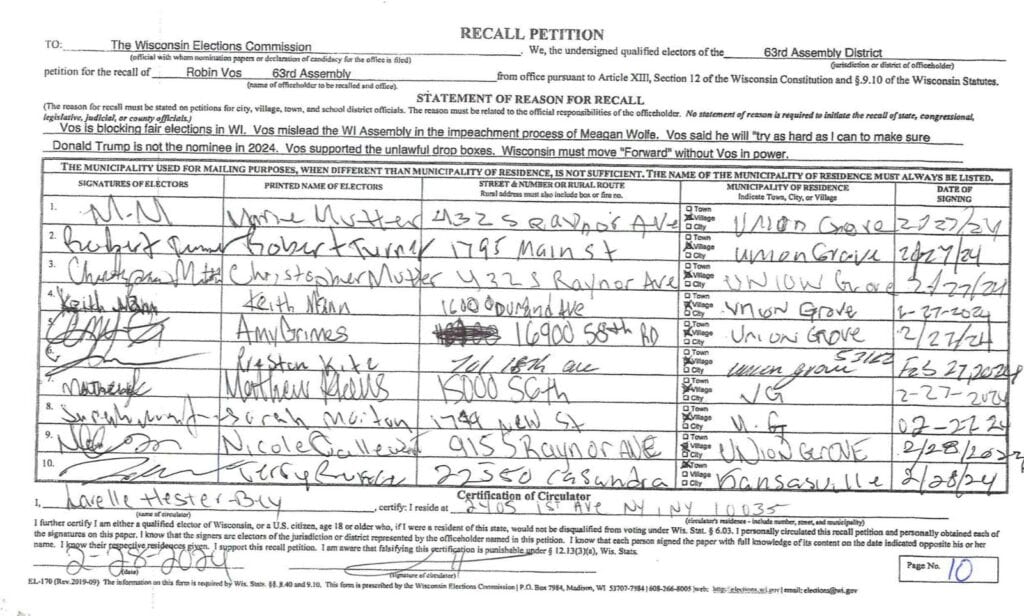 RECALL PETITION
TO: The Wisconsin Elections Commission We, the undersigned qualified electors of the 63rd Assembly District
(official with whom nomination papers or declaration of candidacy for the office is filed) (jurisdiction or district of officeholder)
petition for the recall of Robin Vos 63rd Assembly from office pursuant to Article XIII, Section 12 of the Wisconsin Constitution and §.9.10 of the Wisconsin Statutes.
(name of officeholder to be recalled and office).
STATEMENT OF REASON FOR RECALL
(The reason for recall must be stated on petitions for city, village, town, and school district officials. The reason must be related to the official responsibilities of the officeholder. No statement of reason is required to initiate the recall of state, congressional,
legislative, judicial, or county officials.)
Vos is blocking fair elections in WI. Vos mislead the WI Assembly in the impeachment process of Meagan Wolfe. Vos said he will "try as hard as I can to make sure
Donald Trump is not the nominee in 2024. Vos supported the unlawful drop boxes. Wisconsin must move "Forward" without Vos in power.
THE MUNICIPALITY USED FOR MAILING PURPOSES, WHEN DIFFERENT THAN MUNICIPALITY OF RESIDENCE, IS NOT SUFFICIENT. THE NAME OF THE MUNICIPALITY OF RESIDENCE MUST ALWAYS BE LISTED.
SIGNATURES OF ELECTORS PRINTED NAME OF ELECTORS STREET & NUMBER OR RURAL ROUTE MUNICIPALITY OF RESIDENCE DATE OF
Rural address must also include box or fire no. Indicate Town, City, or Village SIGNING
1. M-M Mutter 432 S Raynor Ave Town Village City Union Grove 2/27/24
2. Robert Turner Robert Turner 1795 Main st Town Village City Union Grove 2/27/24
3. Christopher Mutter 432 S Raynor Ave Town Village City UNION Grove 2/27/24
4. Keith Mann Keith Mann 1600 Durand Ave Town Village City Union Grove 2-27-2024
5. Amy Grimes 16900 58th RD Town Village City Union Grove 2/27/24
6. Preston 18th ave Town Village City union grove 53182 Feb 27, 2024
7. Matthew 15000 56th Town Village City UG 2-27-2024
8. Sarah 1799 New St Town Village City U.G 02-27-24
9. Nicole 915 S Raynor AVE Town Village City UNION GROVE 2/28/2024
10. Terry 22550 Casandra Town Village City Kansasville 2/28/24
Certification of Circulator
I, Lavelle Hester-Bey, certify: I reside at 2405 1ST AVE NY, NY 10035
(name of circulator) (circulator's residence - include number, street, and municipality)
I further certify I am either a qualified elector of Wisconsin, or a U.S. citizen, age 18 or older who, if I were a resident of this state, would not be disqualified from voting under Wis. Stat. § 6.03. I personally circulated this recall petition and personally obtained each of
the signatures on this paper. I know that the signers are electors of the jurisdiction or district represented by the officeholder named in this petition. I know that each person signed the paper with full knowledge of its content on the date indicated opposite his or her
name. I know their respective residences given. I support this recall petition. I am aware that falsifying this certification is punishable under § 12.13(3)(a), Wis. Stats.
2-28-2024
(date) (signature of circulator)
Page No. 10
EL-170 (Rev.2019-09) The information on this form is required by Wis. Stats. §§. 8.40 and 9.10. This form is prescribed by the Wisconsin Elections Commission | P.O. Box 7984, Madison, WI 53707-7984 | 608-266-8005 | web: http://elections.wi.gov | email: elections@wi.gov